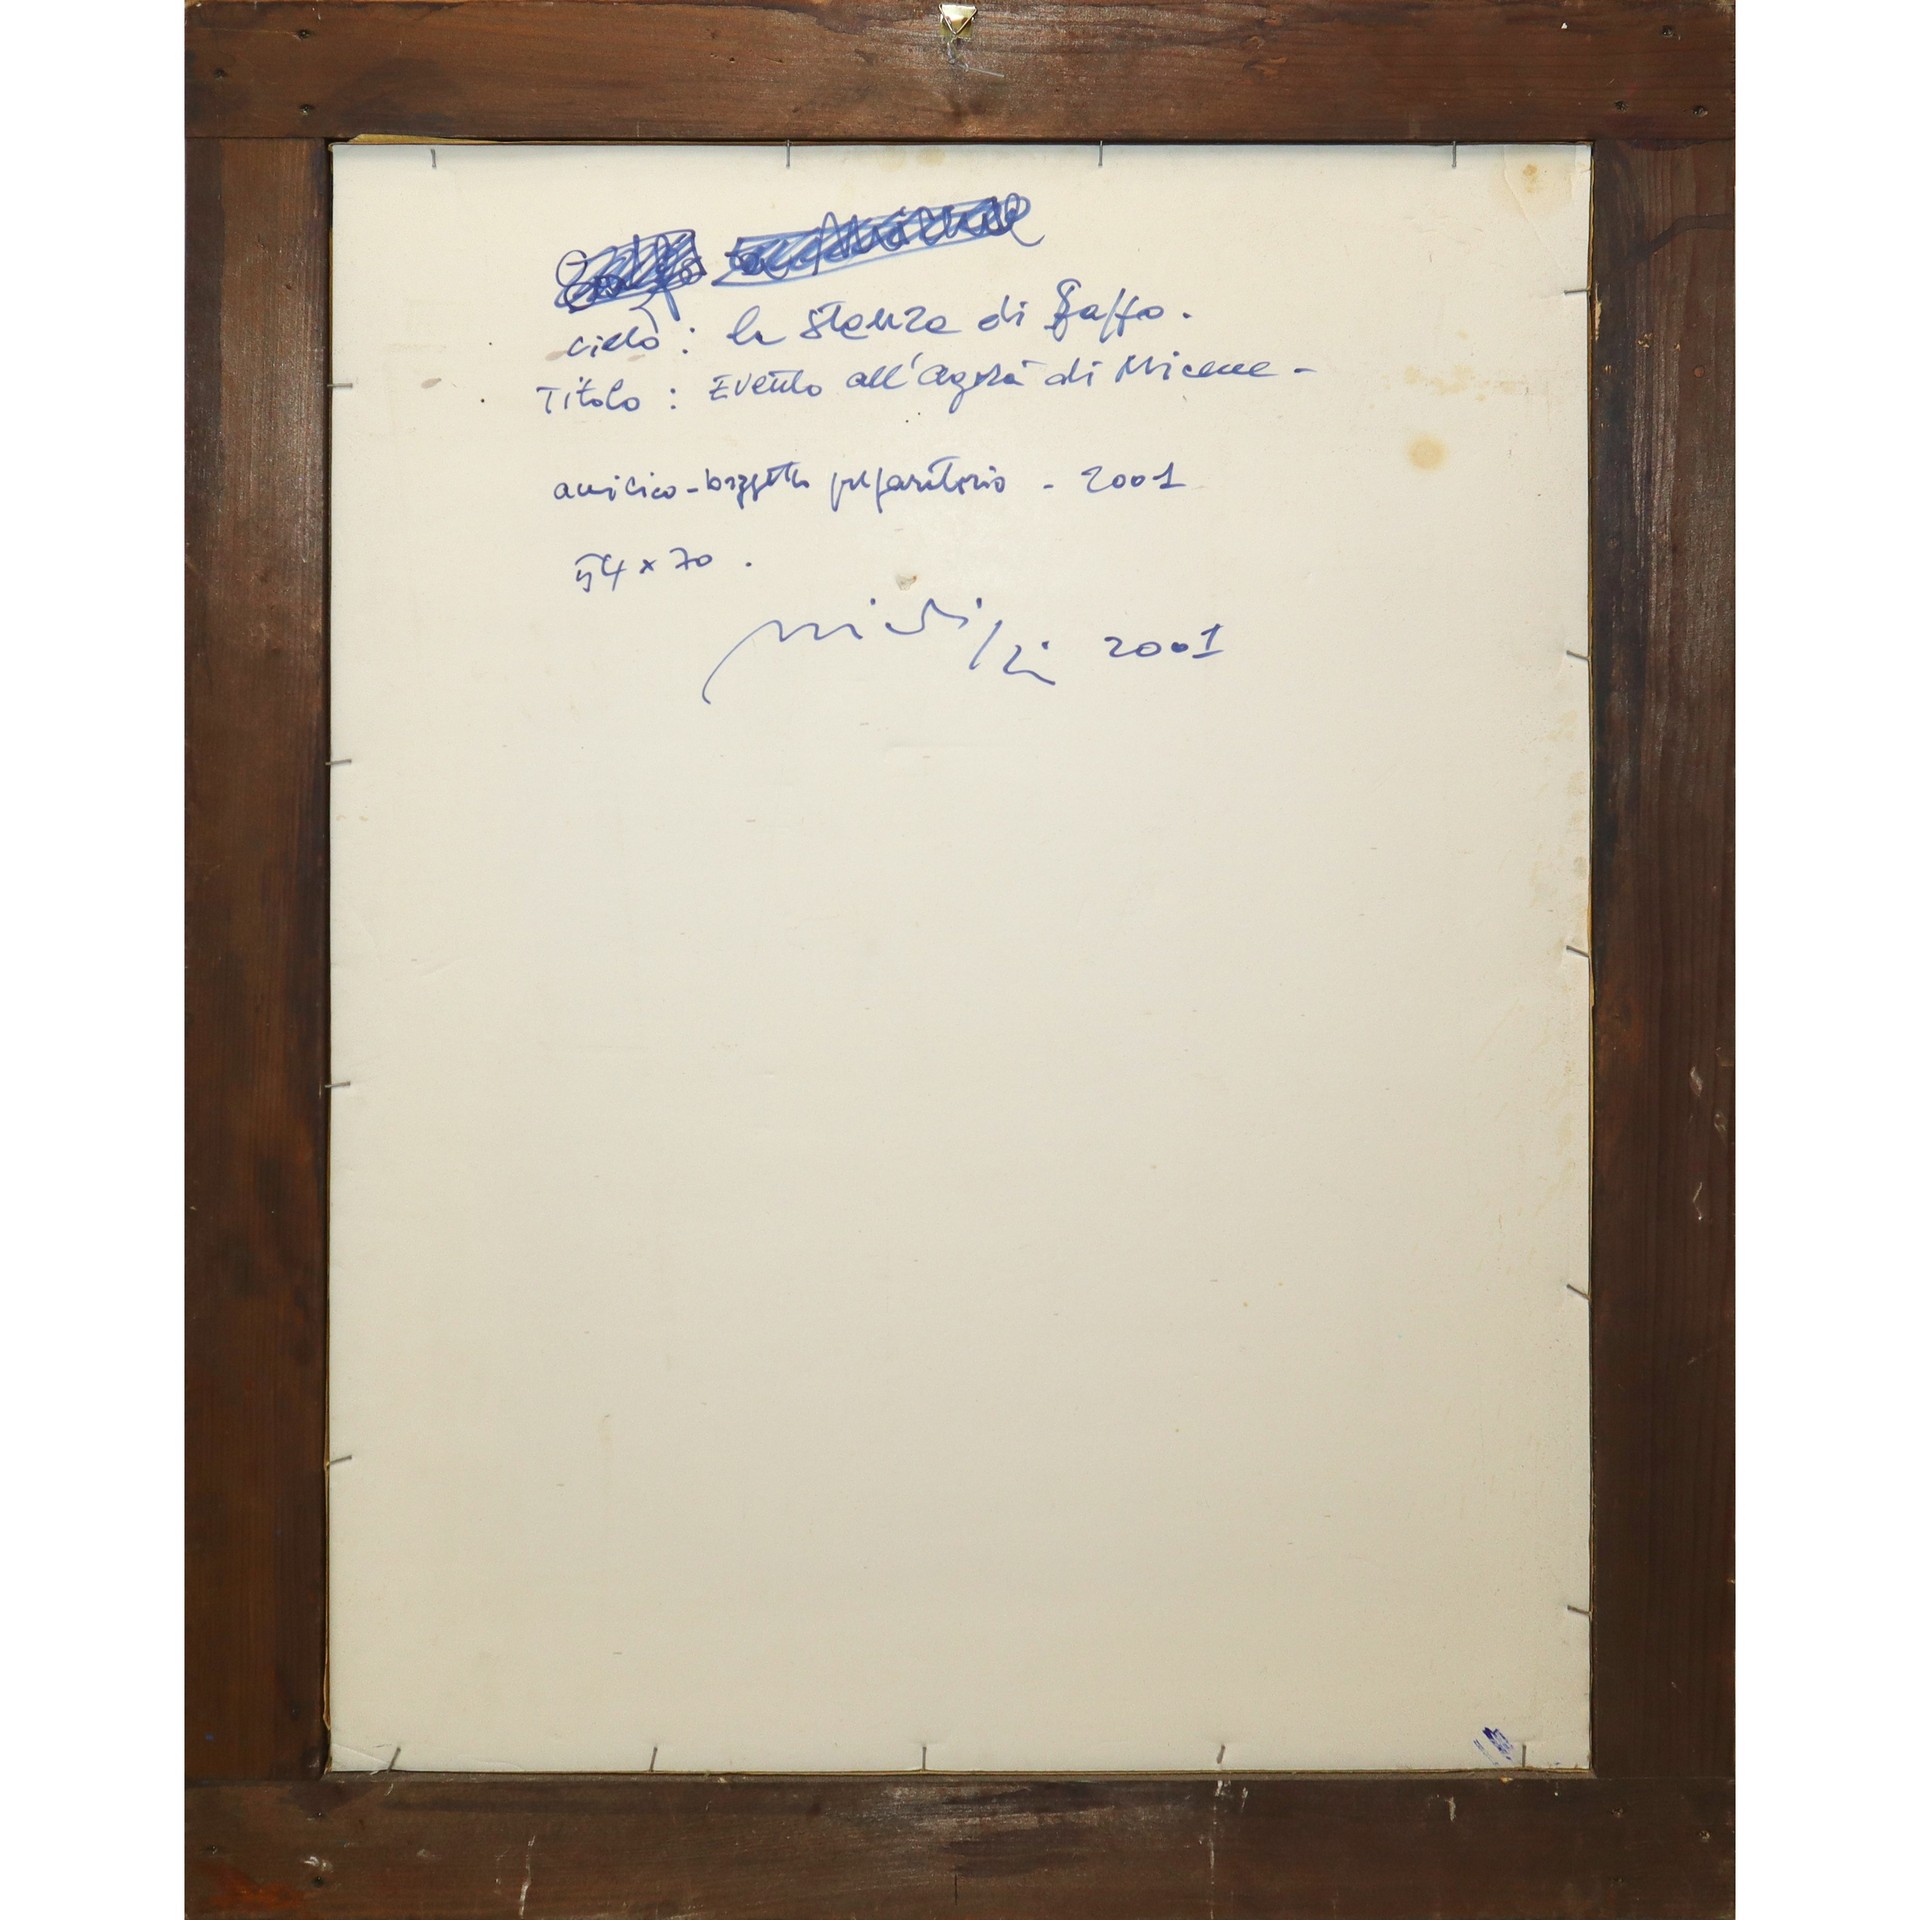 ciclo: la Stanza di Saffo.
Titolo: Evento all'Agorà di Micene -
acrilico - bozzetto preparatorio - 2001
54 x 70.
2001